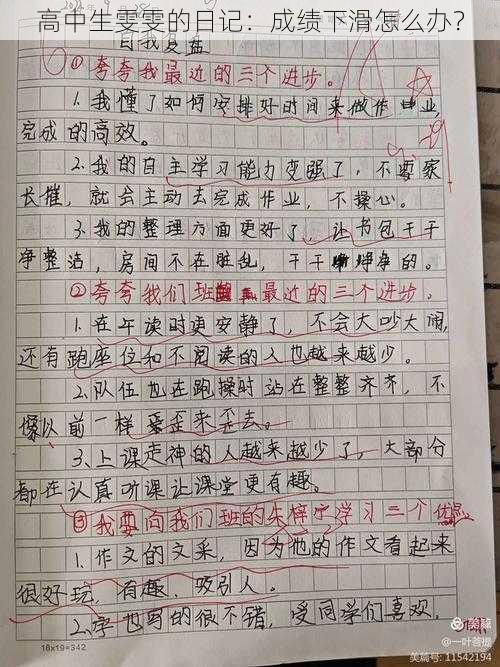 高中生雯雯的日记：成绩下滑怎么办？
自我复盘
①夸夸我最近的三个进步。
1.我懂了如何安排好时间来做作业
完成的高效。
2.我的自主学习能力变强了，不要家
长催，就会主动去完成作业，不操心。
3.我的整理方面更好了，让书包干干
净整洁，房间不在脏乱，干干净净的。
②夸夸我们班最近的三个进步。
1.在午读时更安静了，不会大吵大闹，
还有跑座位和不阅读的人也越来越少。
2.队伍也在跑操时站在整整齐齐，不
像以前一样歪来歪去。
3.上课走神的人越来越少了，大部分
都在认真听课让课堂更有趣。
③我要向我们班的朱梓宁学习三个优点
1.作文的文采，因为他的作文看起来
很好玩，有趣，吸引人。
2.字也写的很不错，受同学们喜欢，
18x19=342
美篇
@一叶菩提
美篇号: 11542194